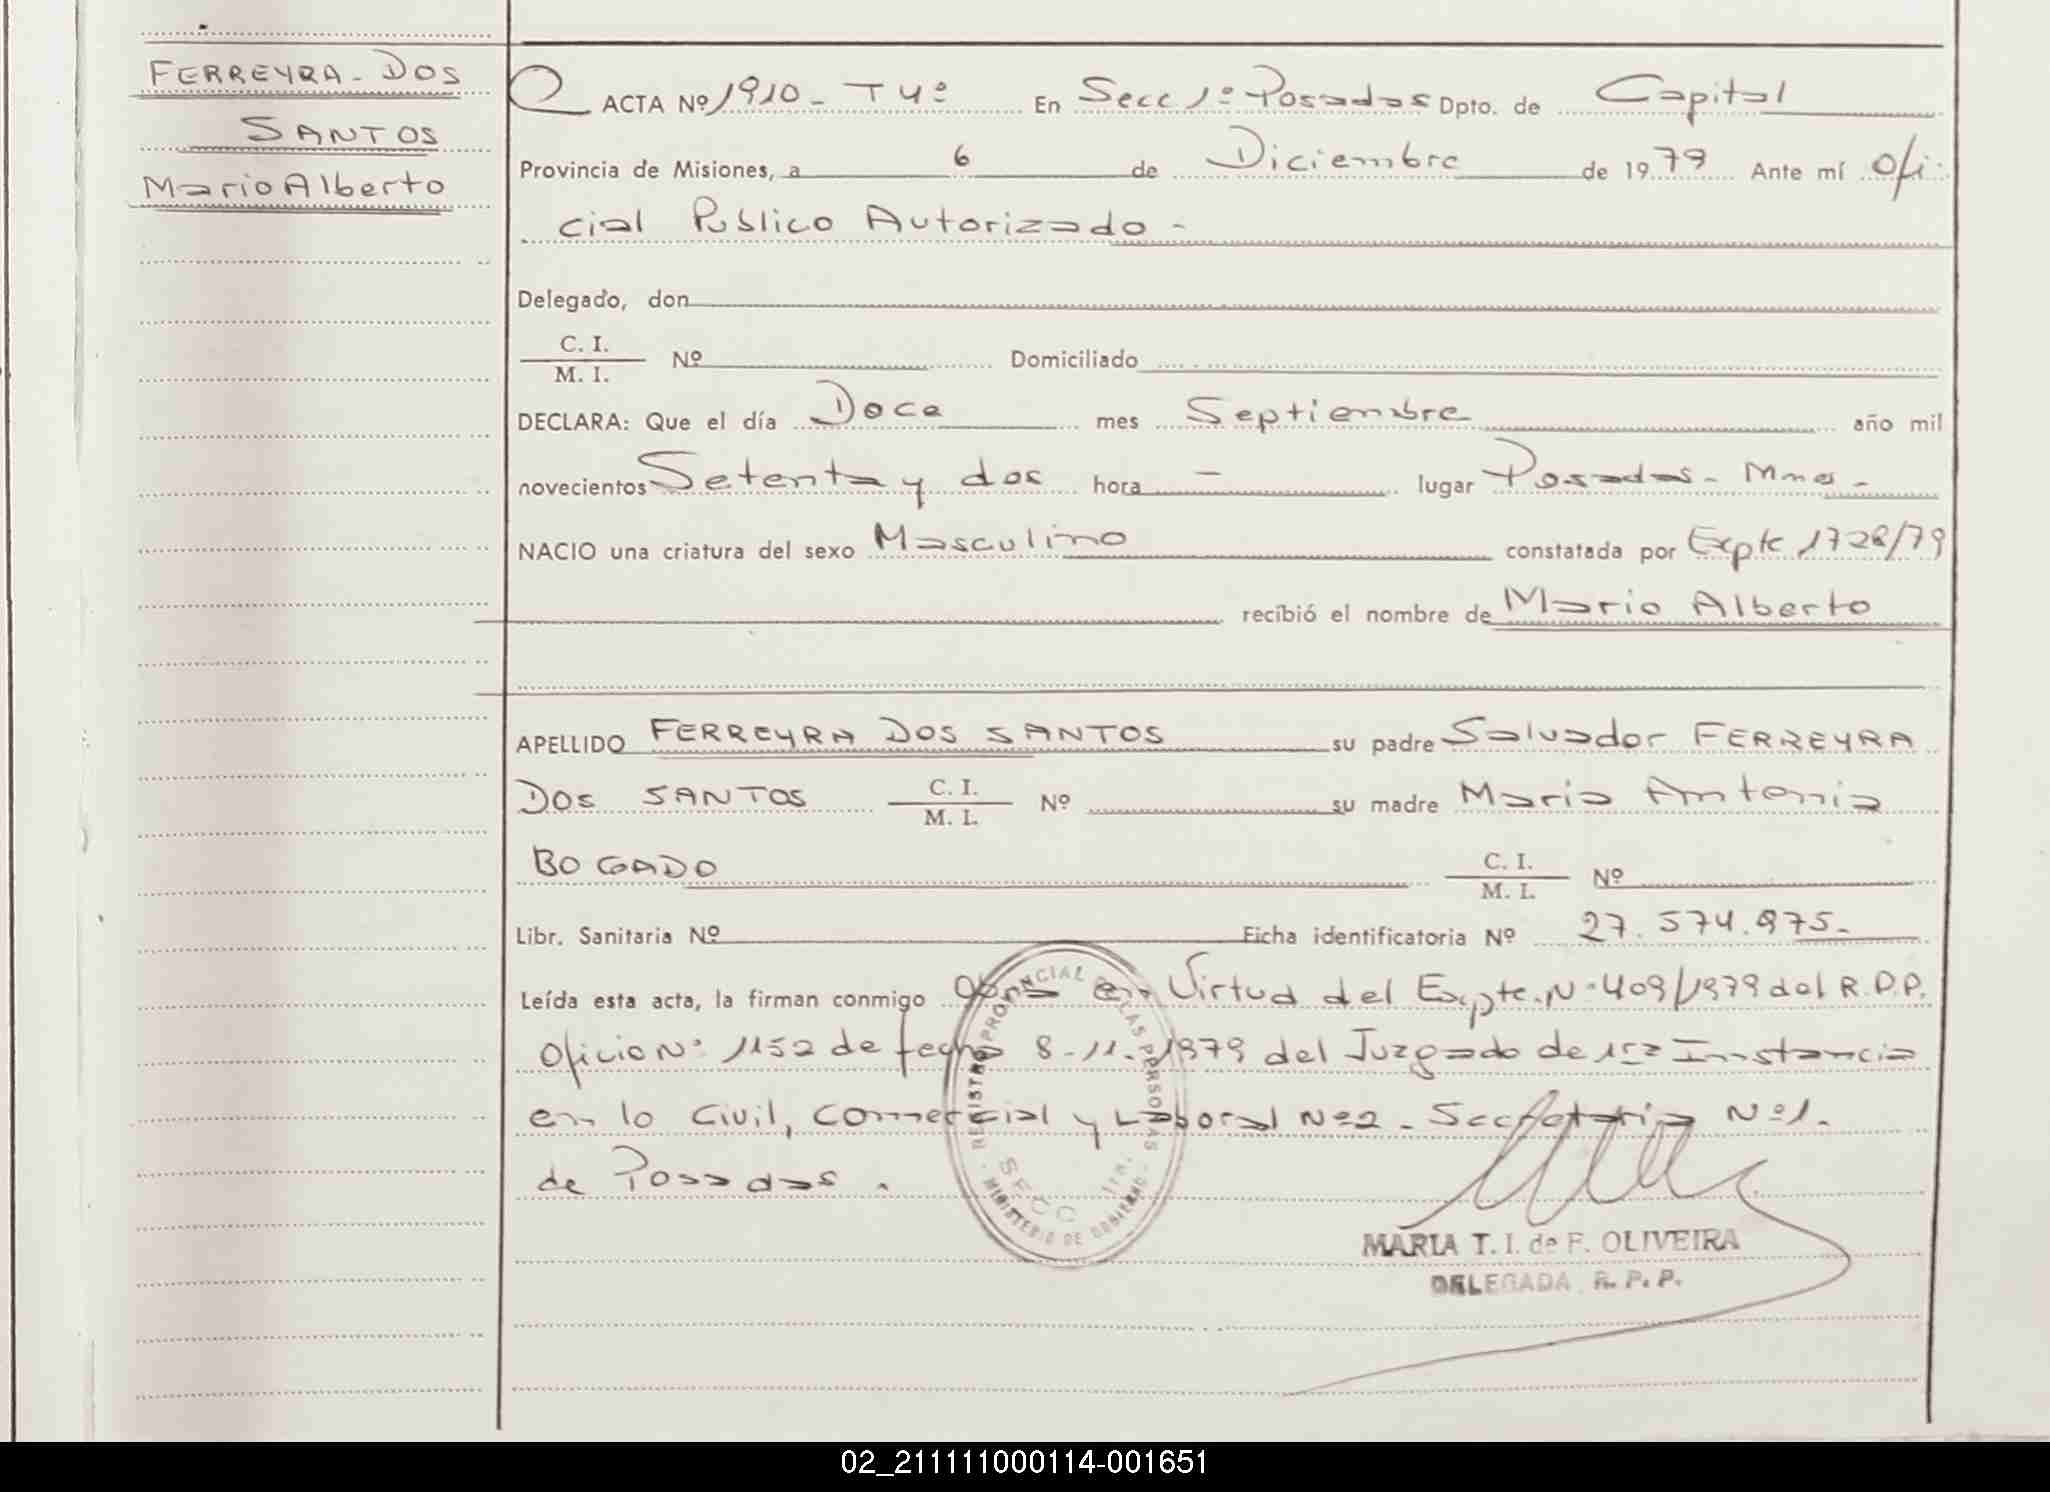 FERREYRA - DOS
SANTOS
Mario Alberto
ACTA Nº 1910 - T 4º En Secc 1º Posadas Dpto. de Capital
Provincia de Misiones, a 6 de Diciembre de 1979 Ante mí Ofi-
cial Publico Autorizado -
Delegado, don
C. I.
M. I. Nº Domiciliado
DECLARA: Que el día Doce mes Septiembre año mil
novecientos Setenta y dos hora - lugar Posadas - Mnes -
NACIO una criatura del sexo Masculino constatada por Expte 1728/79
recibió el nombre de Mario Alberto
APELLIDO FERREYRA DOS SANTOS su padre Salvador FERREYRA
DOS SANTOS C. I. Nº su madre Maria Antonia
M. I.
BOGADO C. I. Nº
M. I.
Libr. Sanitaria Nº Ficha identificatoria Nº 27.574.975.-
Leída esta acta, la firman conmigo Obra en Virtud del Expte. Nº 409/1979 del R.P.P.
Oficio Nº 1152 de fecha 8-11-1979 del Juzgado de 1ra Instancia
en lo Civil, Comercial y Laboral Nº2 - Secretaria Nº1.
de Posadas.
REGISTRO PROVINCIAL DE LAS PERSONAS
SECC. 1ra.
MINISTERIO DE GOBIERNO
MARIA T. I. de F. OLIVEIRA
DELEGADA R. P. P.
02_211111000114-001651